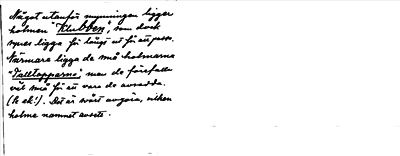 Något utanför mynningen ligger
holmen "Klubben", som dock
synes ligga för långt ut för att passa.
Närmare ligga de små holmarna
"Talltopparna" men de förefalla
väl små för att vara de avsedda.
(1 ek!). Det är svårt avgöra, vilken
holme namnet avsett.